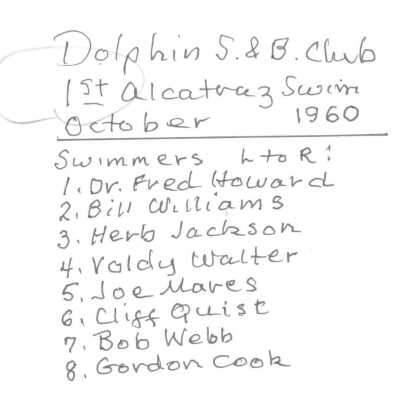 Dolphin S. & B. Club
1st Alcatraz Swim
October 1960
Swimmers L to R:
1. Dr. Fred Howard
2. Bill Williams
3. Herb Jackson
4. Valdy Walter
5. Joe Mares
6. Cliff Quist
7. Bob Webb
8. Gordon Cook